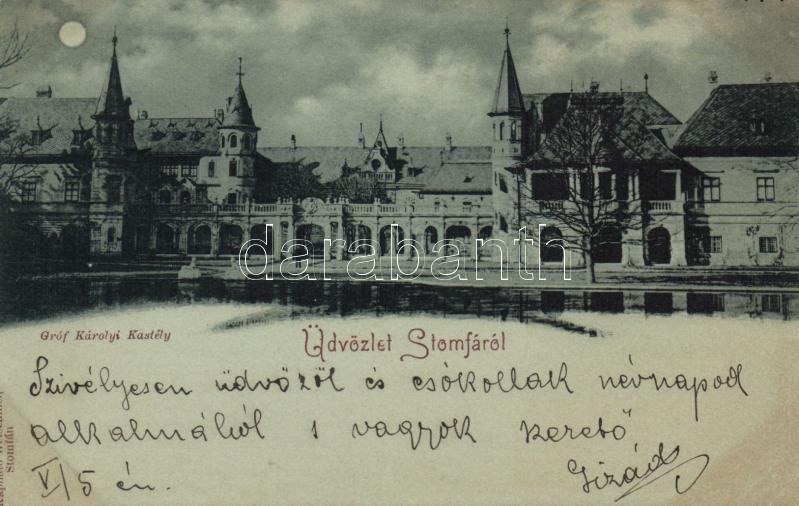 darabanth.com
Gróf Károlyi Kastély
Üdvözlet Stomfáról
Szivélyesen üdvözöl és csókollak névnapod
alkalmából s vagyok szerető
Gizád
V/5 én.
Stomfán